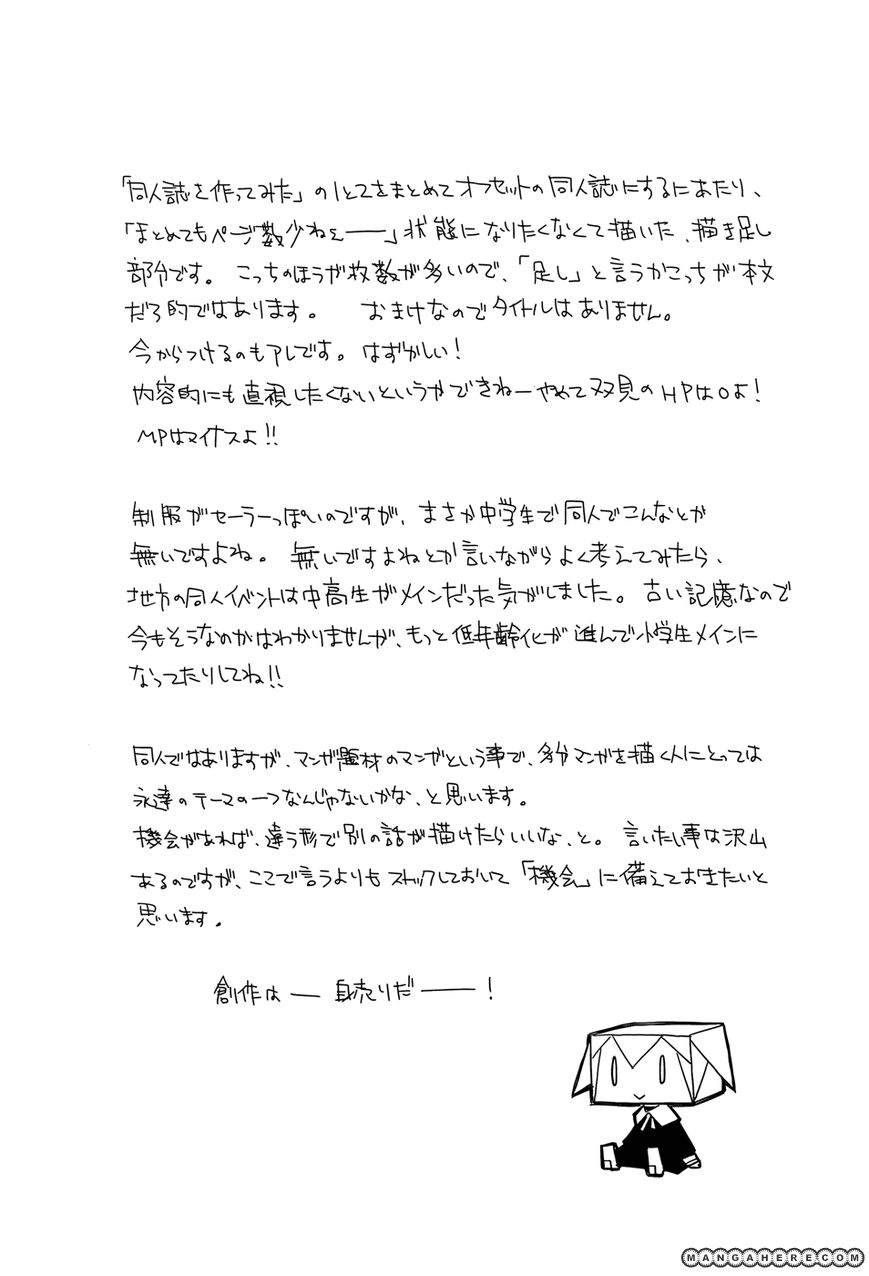 「同人誌を作ってみた」の1と2をまとめてオフセットの同人誌にするにあたり、
「まとめてもページ数少ねぇ――」状態になりたくなくて描いた、描き足し
部分です。 こっちのほうが枚数が多いので、「足し」と言うかこっちが本文
だろ的ではあります。 おまけなのでタイトルはありません。
今からつけるのもアレです。はずかしい!
内容的にも直視したくないというかできねーやめて双見のHPは0よ!
MPはマイナスよ!!
制服がセーラーっぽいのですが、まさか中学生で同人でこんなとか
無いですよね。 無いですよねとか言いながらよく考えてみたら、
地方の同人イベントは中高生がメインだった気がしました。古い記憶なので
今もそうなのかはわかりませんが、もっと低年齢化が進んで小学生メインに
なってたりしてね!!
同人ではありますが、マンガ題材のマンガという事で、多分マンガを描く人にとっては
永遠のテーマの一つなんじゃないかな、と思います。
機会があれば、違う形で別の話が描けたらいいな、と。 言いたい事は沢山
あるのですが、ここで言うよりもストックしておいて「機会」に備えておきたいと
思います。
創作は― 身売りだ――!
MANGAHERE.COM